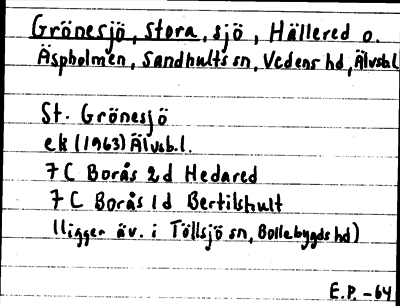 Grönesjö, Stora, sjö, Hällered o.
Äspholmen, Sandhults sn, Vedens hd, Älvsb.l
St. Grönesjö
ek (1963) Älvsb.l.
7 C Borås 2d Hedared
7 C Borås 1d Bertilshult
(ligger äv. i Töllsjö sn, Bollebygds hd)
E.P. -64